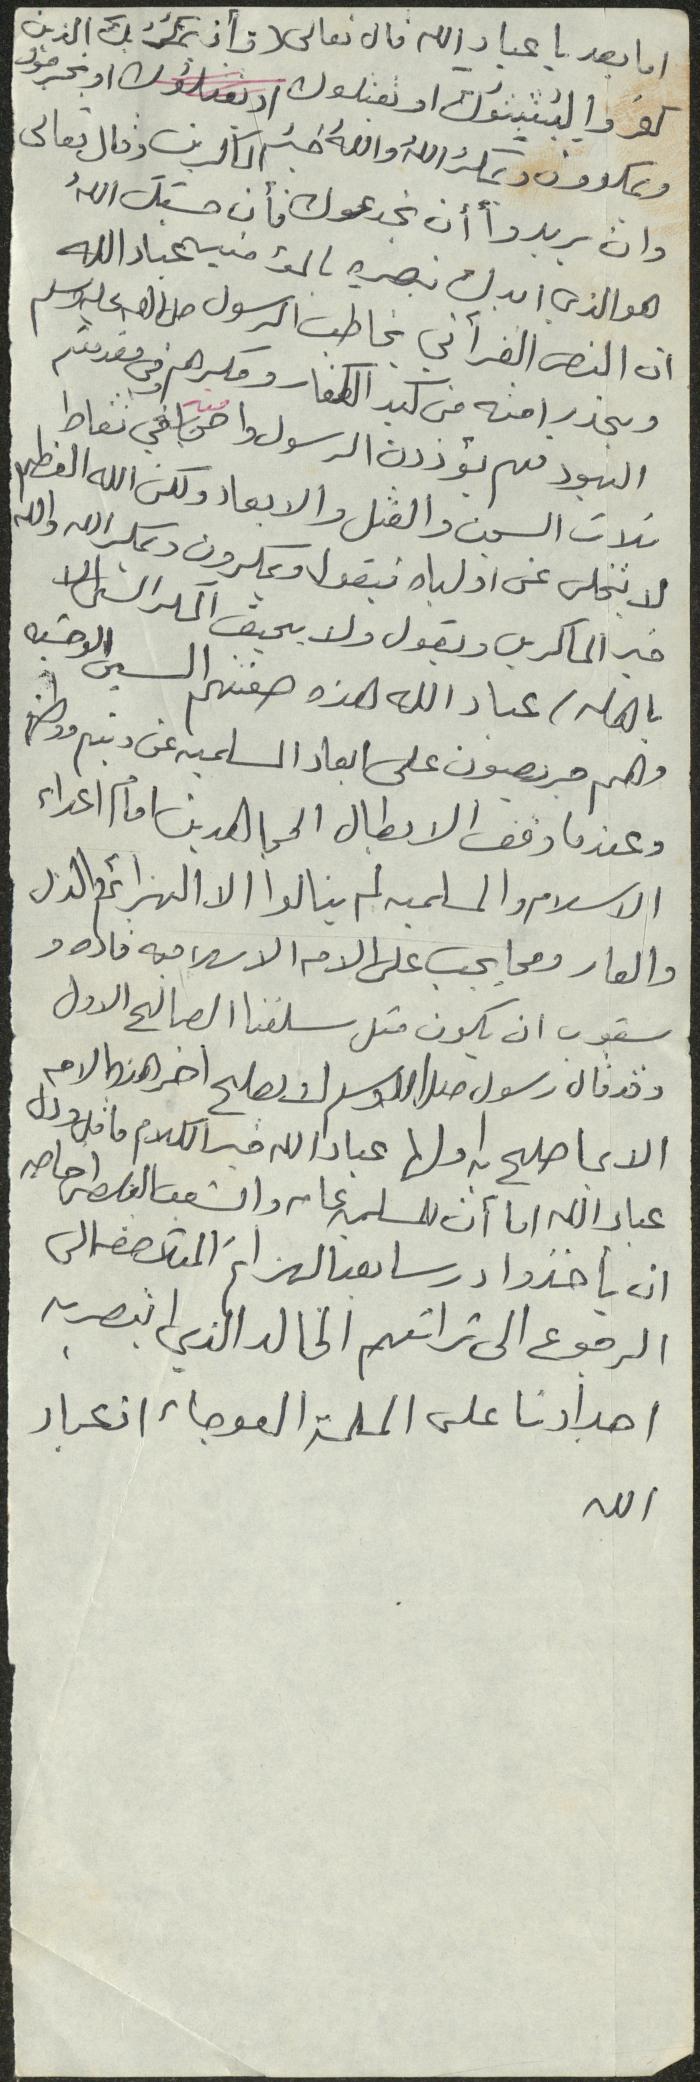 اما بعد يا عباد الله قال تعالى وأذ يمكرُ بك الذين
كفروا ليُثبتوُك او يقتلوك او يقتلوُك او يخرجوك
ويمكرون ويمكرُ اللهُ واللهُ خيرُ الماكرين وقال تعالى
وان يريدوأ أن يخدعوك فأن حسبك اللهُ
هو الذي ايدك بنصره بالمؤمنيين عباد الله
ان النص القرآني يخاطب الرسول صلى الله عليه وسلم
ويحذر امته من كيد الكفار ومكرهم وفي مقدمتهم
اليهود فهم يؤذون الرسول وا في نقاط
ثلاث السجن والقتل والابعاد ولكن الله العظيم
لا يتخلى عن اولياه فيقول ويمكرون ويمكر الله والله
خير الماكرين ويقول ولا يحيق المكر السيئ الا
باهله / عباد الله هذه صفتهم السيئ الوحشيه
وهم حريصون على ابعاد المسلميه عن دينهم ووطنهم
وعندما وقف الابطال المجاهدين امام اعداء
الاسلام والمسلميه لم ينالوا الا الهزائم والذل
والعار ومما يجب على الامه الاسلاميه قاده و
شعوب ان يكون مثل سلفنا الصالح الاول
وقد قال رسول صلى الله وسلم لا يصلح اخر هذه الامه
الا بما صلح به اولها عباد الله خير الكلام ما قل ودل
عباد الله اما آن للمسلميه عامه والشعب الفلسطيني خاصه
ان يأخذوا درسا بعد الهزائم المتلاحقه الى
الرجوع الى تراثهم الخالد الذي انتصر به
اجدادنا على الملة العوجاء انعباد
الله